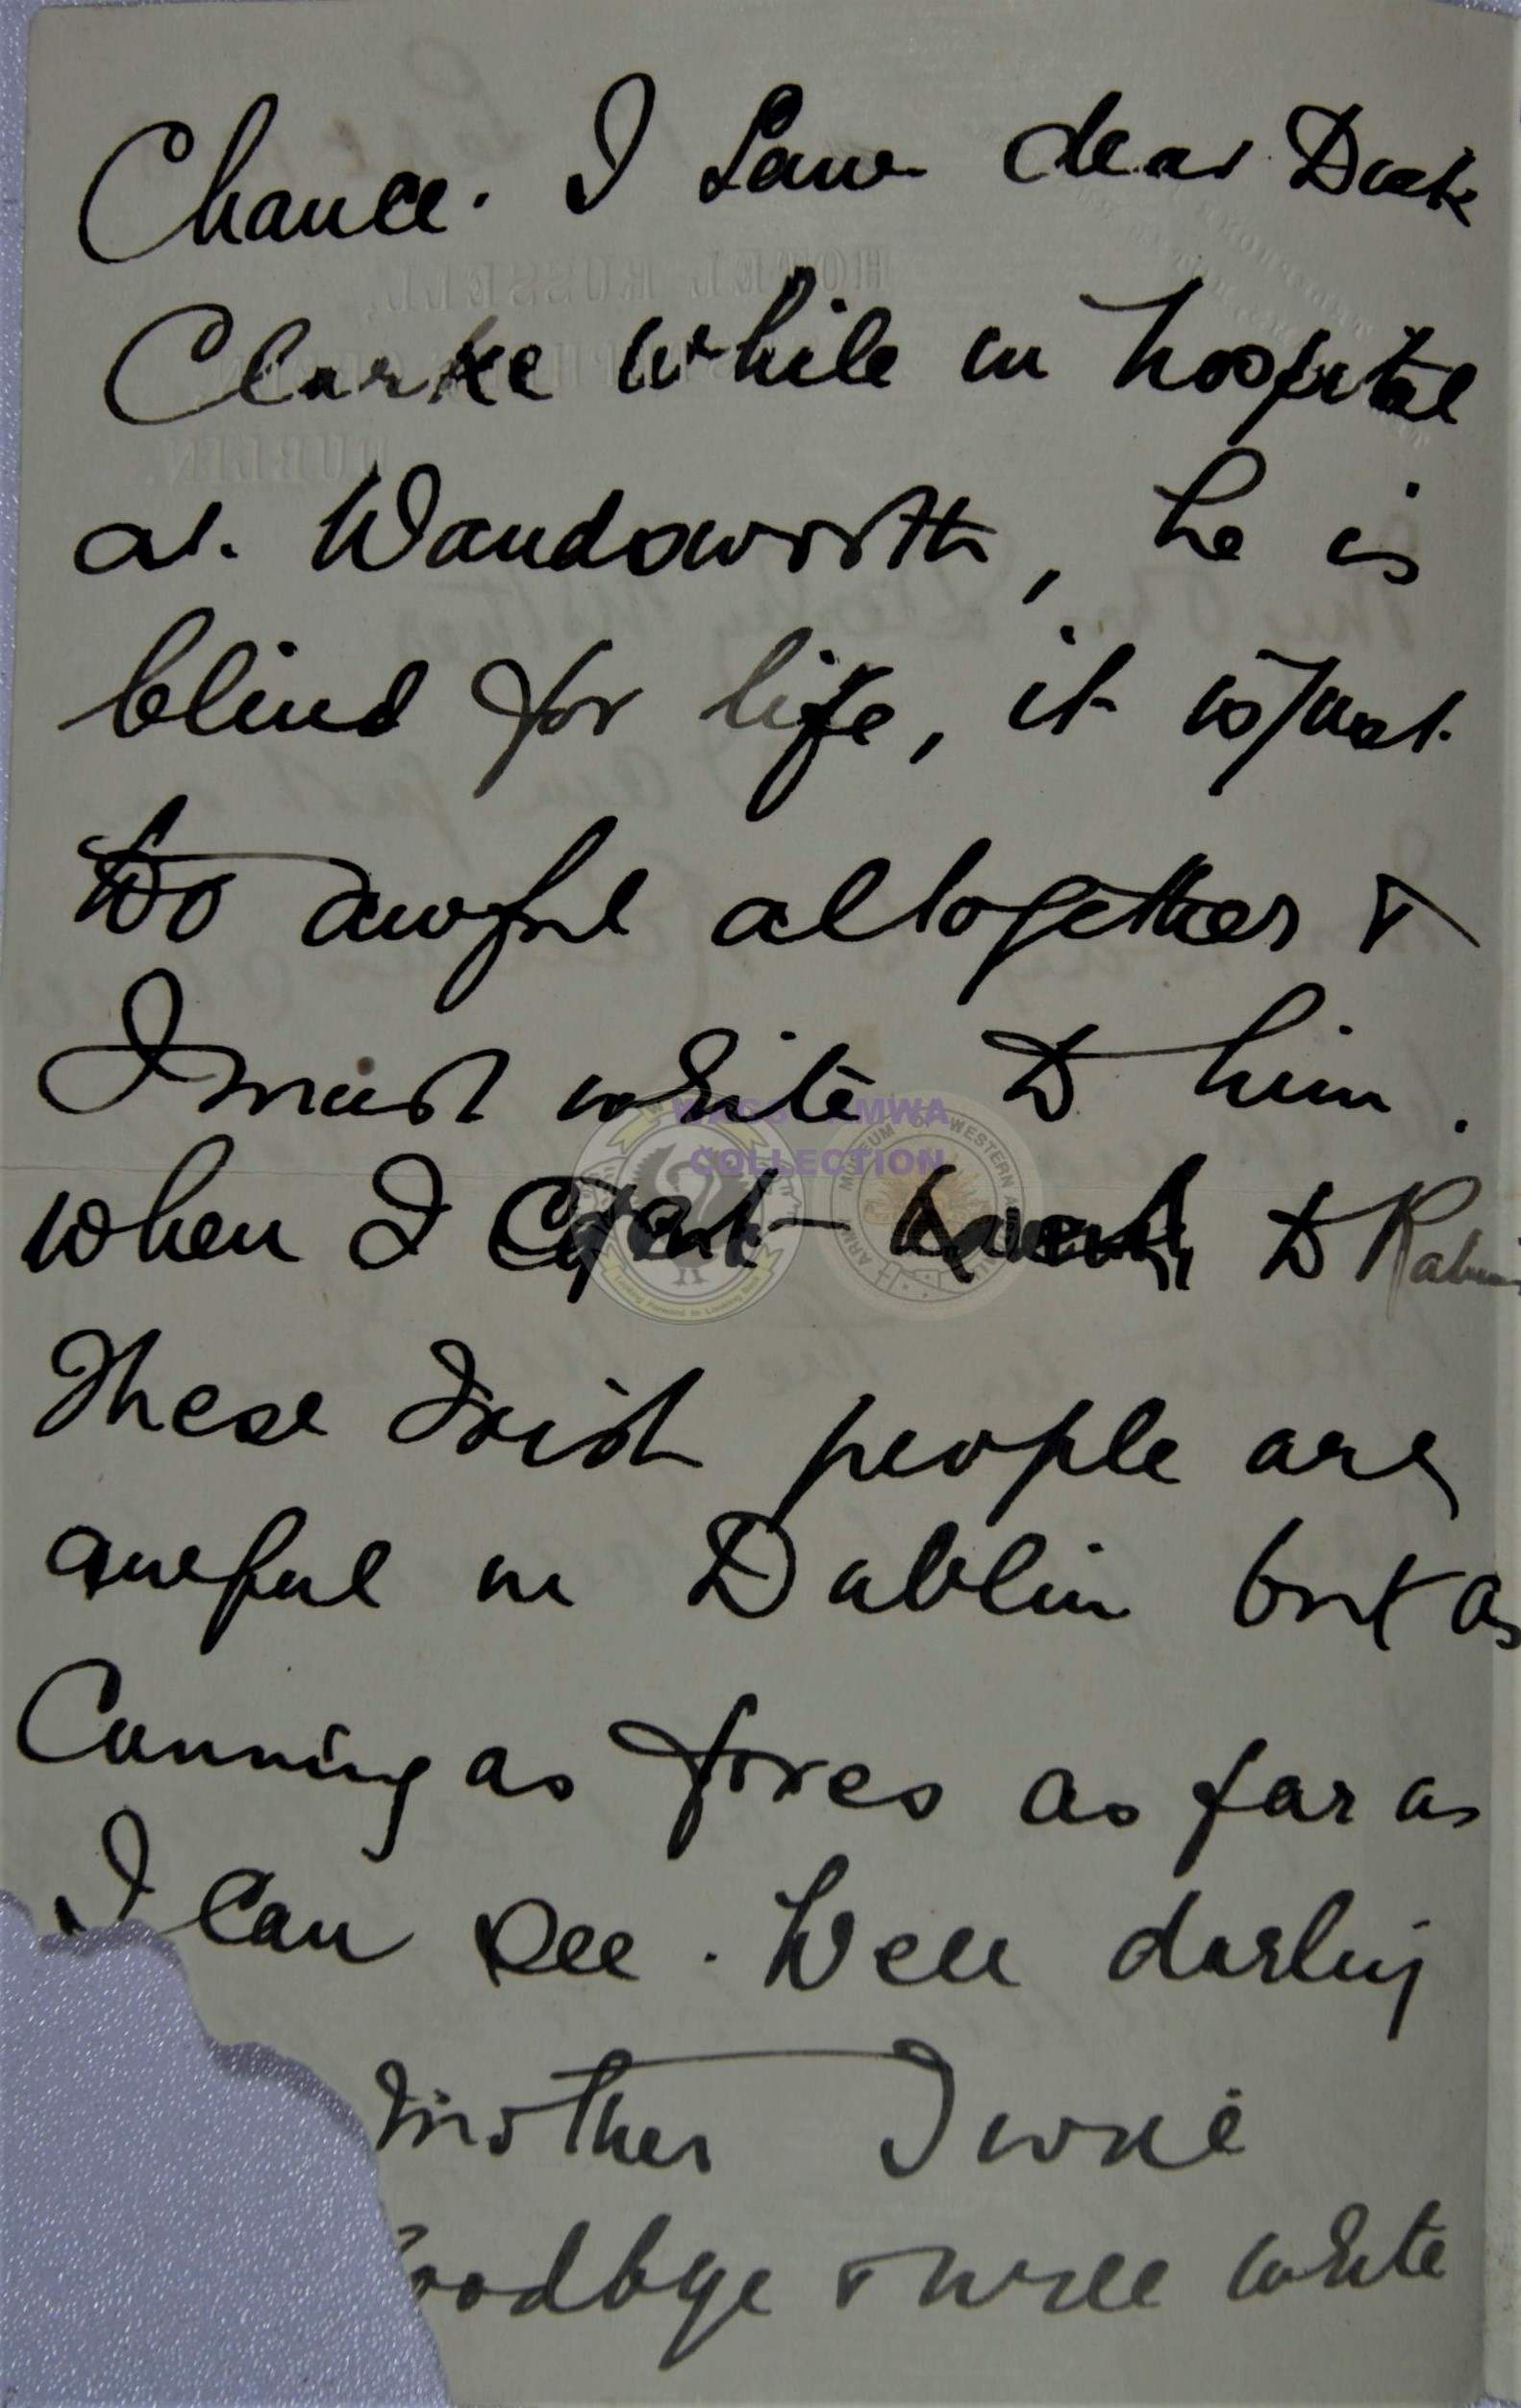 Chance. I saw dear Dick
Clarke while in hospital
at. Wandsworth, he is
blind for life, it is just
too awful altogether &
I must write to him.
when I get back to
These Irish people are
awful in Dublin but as
Cunning as foxes as far as
I can see. Well darling
Mother I will
goodbye & will write
HOTEL RUSSELL,
DUBLIN.
WAGS - AMWA
COLLECTION
ARMY MUSEUM OF WESTERN AUSTRALIA